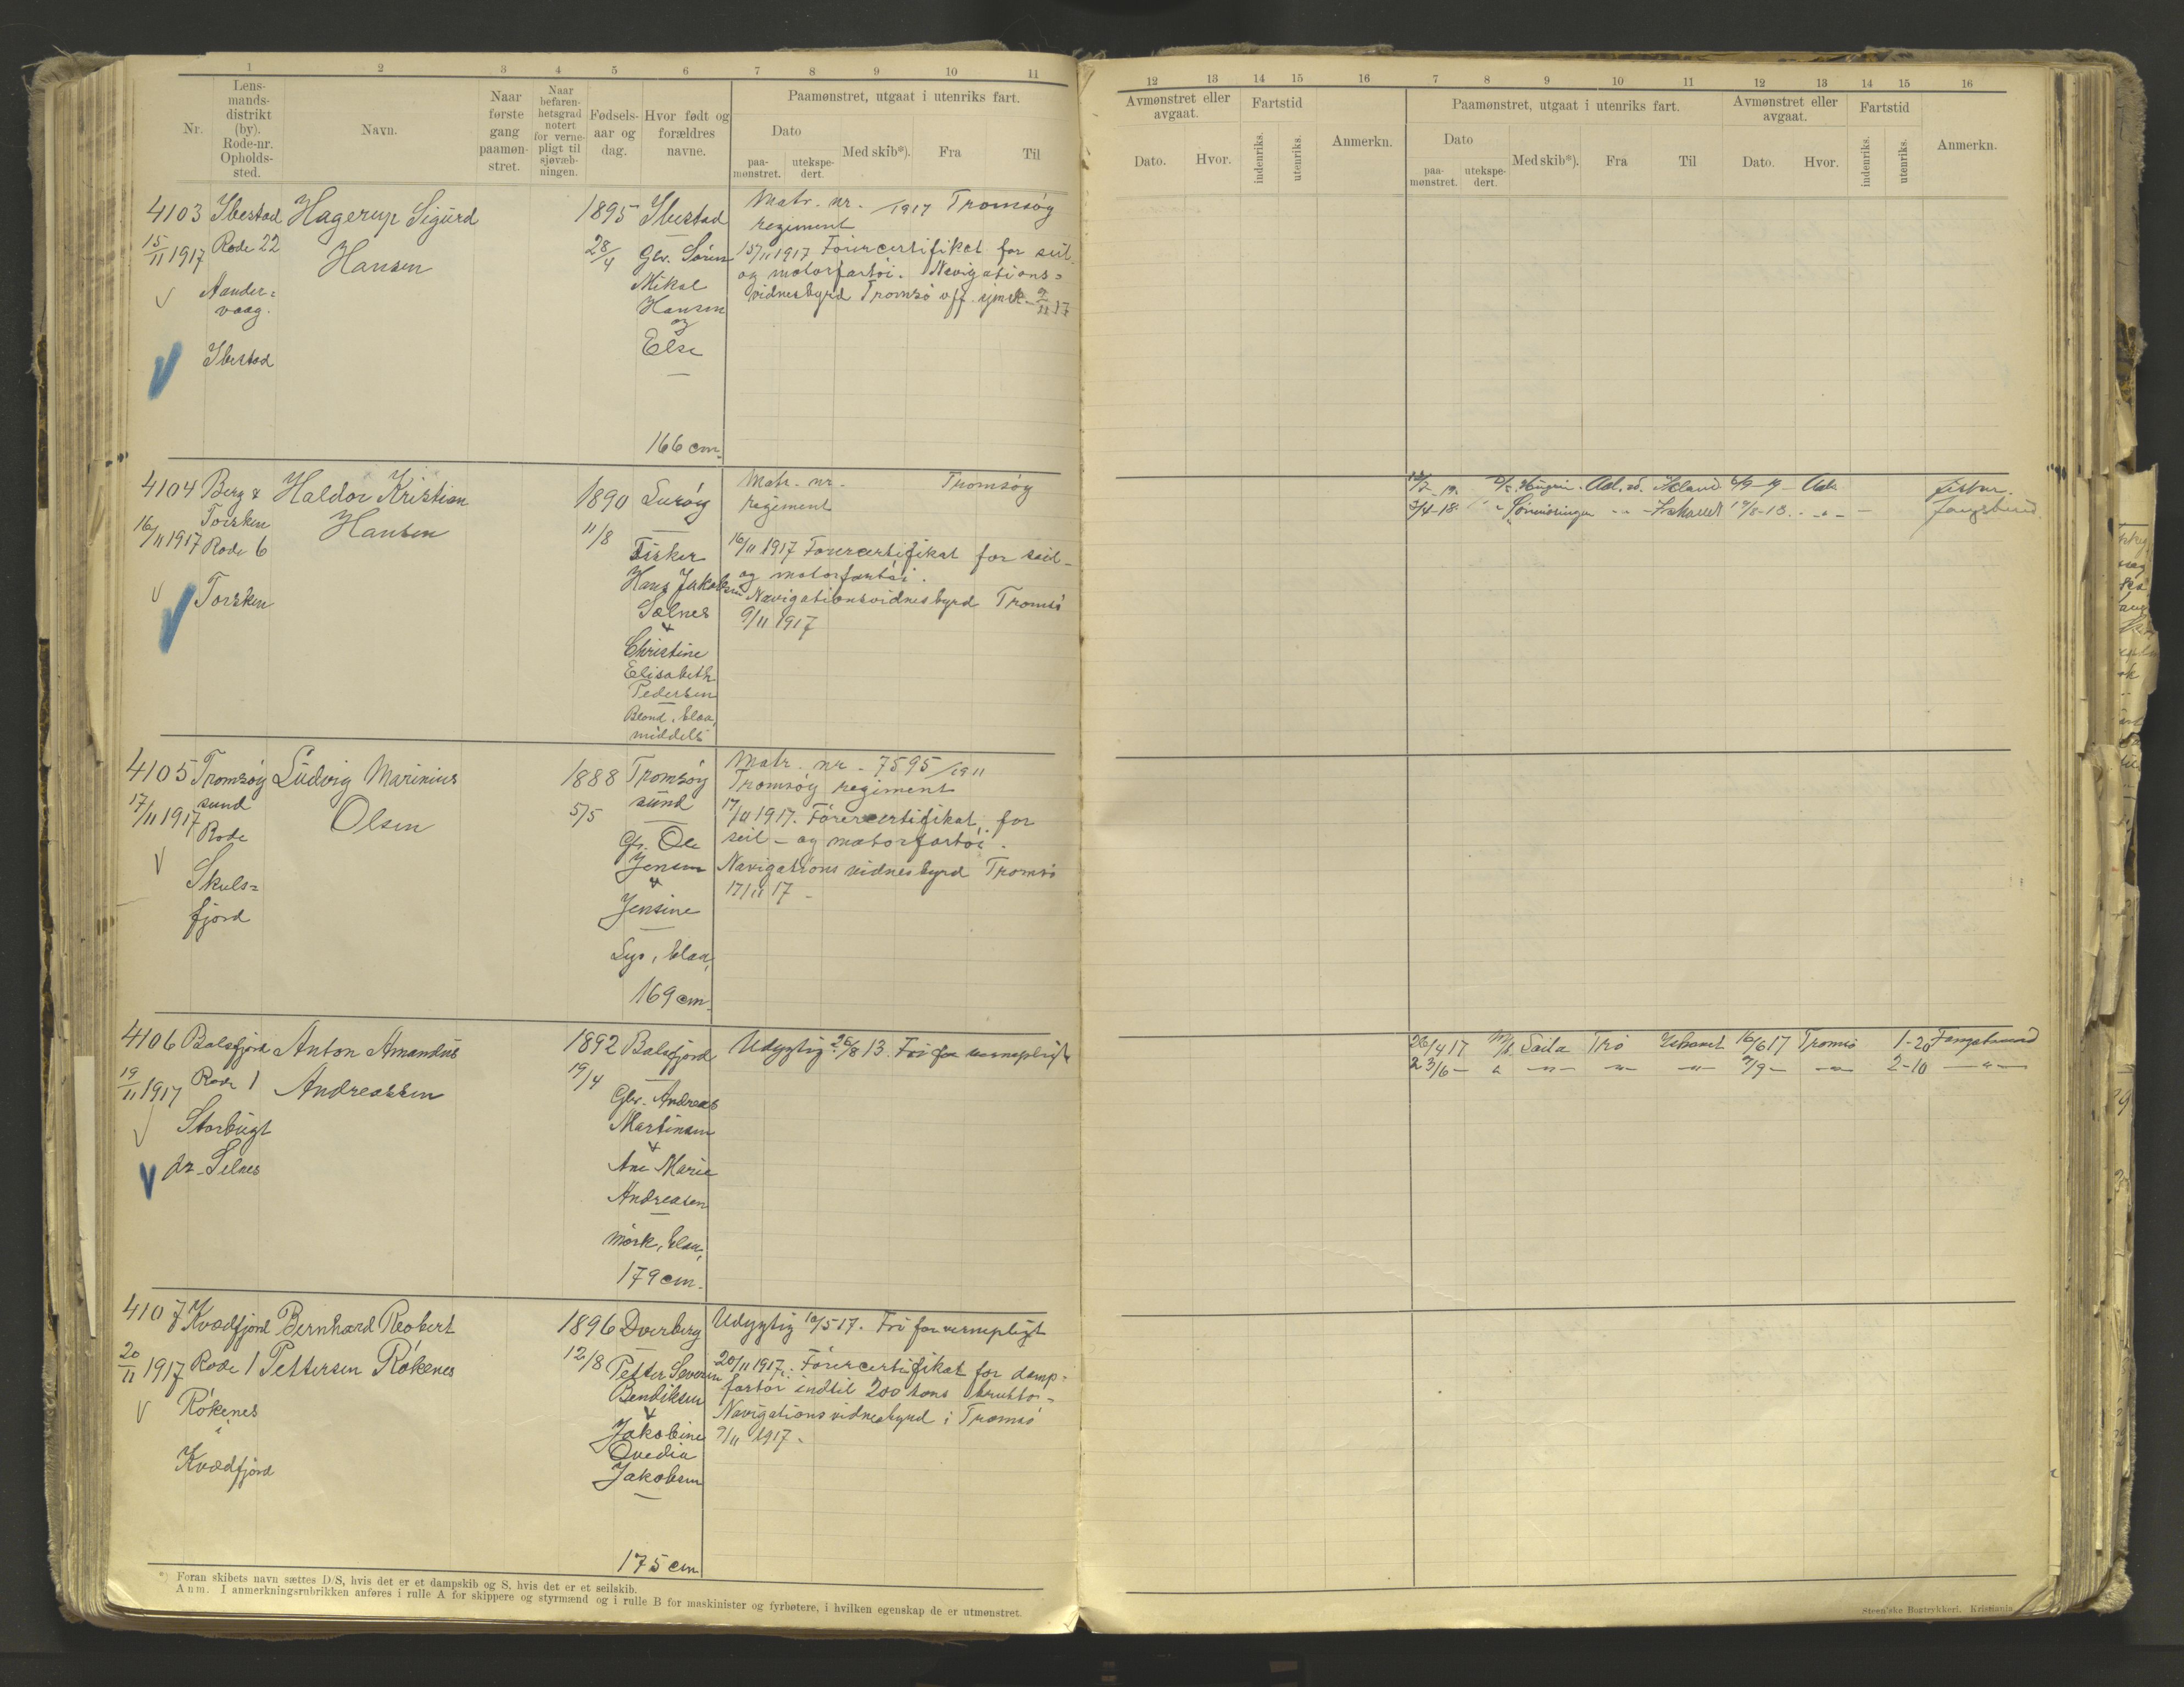 1 2 3 4 5 6 7 8 9 10 11
Nr.
Lens-
mands-
distrikt
(by).
Rode-nr.
Opholds-
sted.
Navn.
Naar
første
gang
paamøn-
stret.
Naar
befaren-
hetsgrad
notert
for verne-
pligt til
sjøvæb-
ningen.
Fødsels-
aar og
dag.
Hvor født og
forældres
navne.
Paamønstret, utgaat i utenriks fart.
Dato
paa-
mønstret.
utekspe-
dert.
Med skib*).
Fra
Til
4103 Ibestad Hagerup Sigurd 1895 Ibestad Matr. nr. /1917 Tromsøy
regiment
15/11 1917 Rode 22 Hansen 28/4 Gbr. Søren 15/11 1917 Førercertifikat for seil-
Mikal og motorfartøi. Navigations=
Aander=
vaag.
Hansen vidnesbyrd Tromsø off. sjmsk. 2/11 17
og
Ibestad Else
166 cm.
4104 Berg & Haldor Kristian 1890 Lurøy Matr. nr. Tromsøy
Torsken Hansen regiment
16/11 1917 Rode 6 11/8 Fisker 16/11 1917 Førercertifikat for seil-
Torsken Hans Jakobsen og motorfartøi.
Sælnes Navigationsvidnesbyrd Tromsø
& 9/11 1917
Christine
Elisabeth
Pedersen
Blond, blaa,
middels
4105 Tromsøy Ludvig Marinius 1888 Tromsøy Matr. nr. 7595/1911
sund Olsen 5/5 sund Tromsøy regiment
17/11 1917 Rode 17/11 1917. Førercertifikat for
Gbr. Ole seil- og motorfartøi.
Skuls= Jensen Navigations vidnesbyrd Tromsø
fjord & 17/11 17 -
Jensine
Lys, blaa,
169 cm
4106 Balsfjord Anton Amandus 1892 Balsfjord Udygtig 26/8 13. Fri for vernepligt
19/11 1917 Rode 1 Andreassen 19/4 Gbr. Andreas
Storbugt Martinsen
&
pr. Selnes Ane Marie
Andreasen
mørk, blaa,
179 cm.
4107 Kvædfjord Bernhard Robert 1896 Dverberg Udygtig 10/5 17. Fri for vernepligt
20/11 1917 Rode 1 Pettersen Røkenes 12/8 Petter Severin 20/11 1917. Førercertifikat for damp-
Røkenes Bendiksen fartøi indtil 200 tons brutto-
i & Navigations vidnesbyrd i Tromsø
Kvædfjord Jakobine 9/11 1917.
Ovedia
Jakobsen
175 cm
*) Foran skibets navn sættes D/S, hvis det er et dampskib og S, hvis det er et seilskib.
Anm. I anmerkningsrubrikken anføres i rulle A for skippere og styrmænd og i rulle B for maskinister og fyrbøtere, i hvilken egenskap de er utmønstret.
12 13 14 15 16 7 8 9 10 11 12 13 14 15 16
Avmønstret eller
avgaat.
Dato.
Hvor.
Fartstid
indenriks.
utenriks.
Anmerkn.
Paamønstret, utgaat i utenriks fart.
Dato
paa-
mønstret.
utekspe-
dert.
Med skib*).
Fra
Til
Avmønstret eller
avgaat.
Dato.
Hvor.
Fartstid
indenriks.
utenriks.
Anmerkn.
3/4-18. Ishavet
26/4 17 M/S. Trø Ishavet 16/6 17 Tromsø 1-20 Fangstmand
23/6 - " -"- -"- -"- 9/9 - -"- 2-10 -"-
Steen'ske Bogtrykkeri, Kristiania